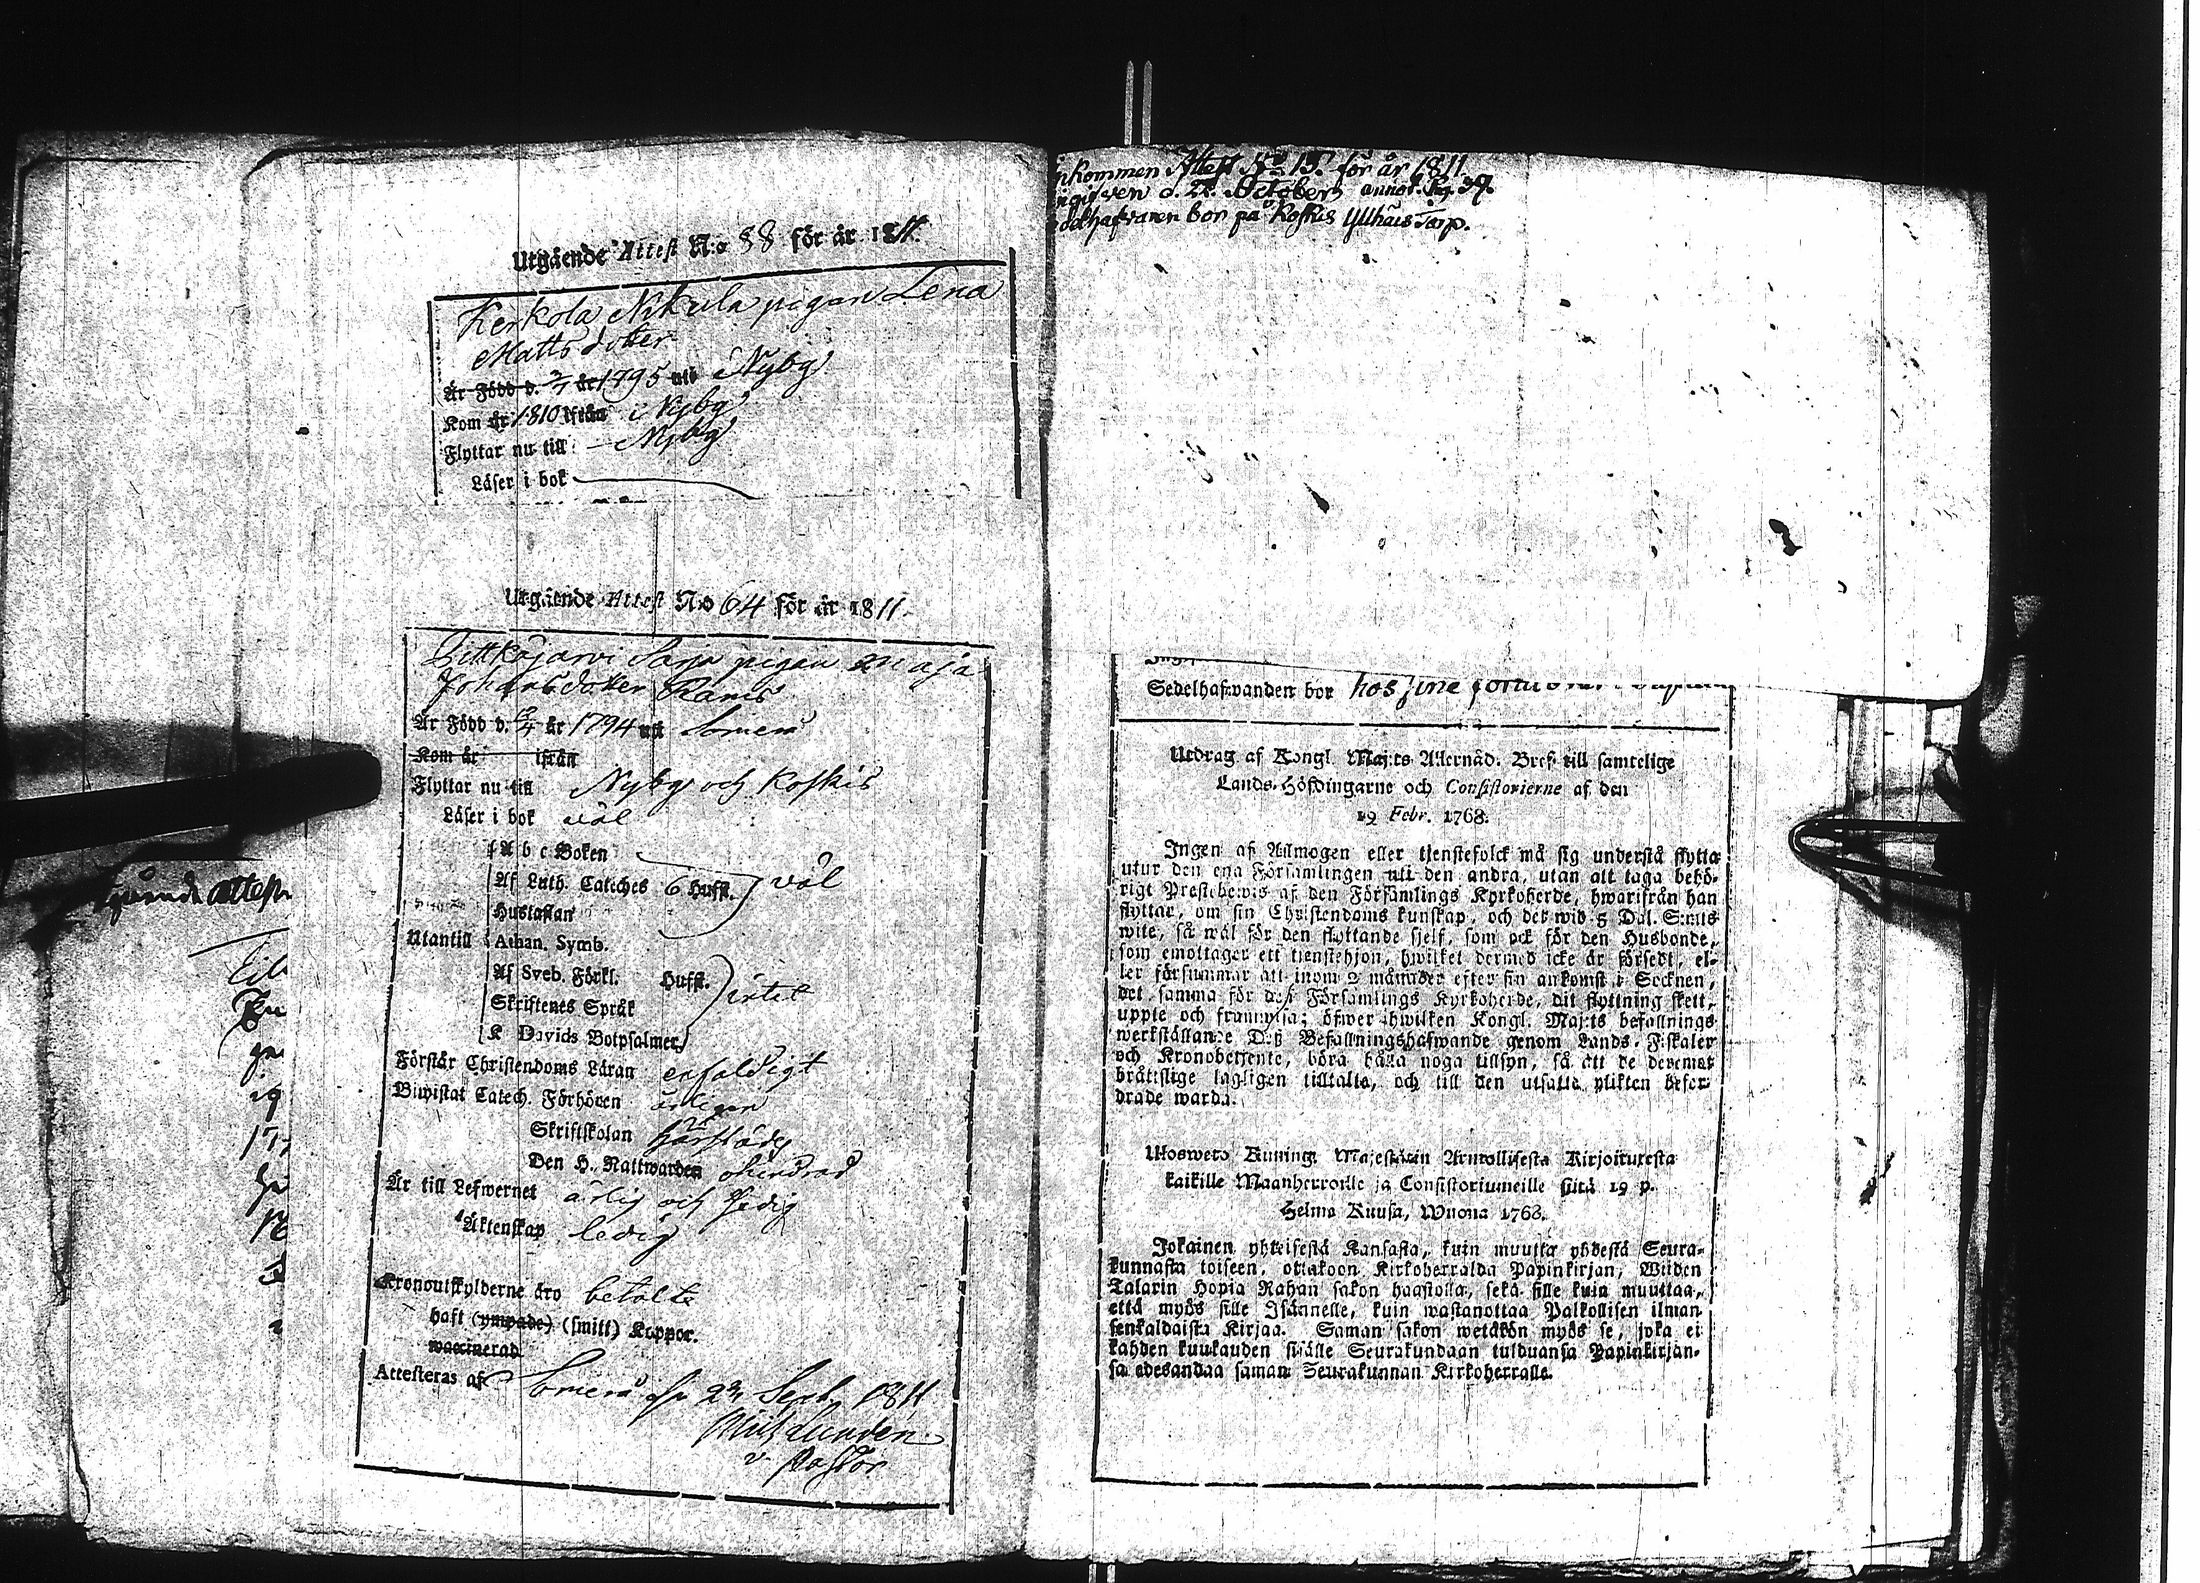 Utgående Attest N:o 88 för år 1811.
Kerkola Nikula pigan Lena
Matts dotter
Är Född d. 2/7 år 1795 uti Nyby
Kom år 1810 ifrån Nyby
Flyttar nu till Nyby
Läser i bok
Utgående Attest N:o 64 för år 1811.
Sarja pigan Maja
Johansdotter
Är Född d. år 1794 uti Somero
Kom år ifrån
Flyttar nu till Nyby och Koskis
Läser i bok väl
A b c Boken
Af Luth. Cateches 6 Hufst. väl
Hustaflan
Utantill Athan. Symb.
Af Sveb. Förkl. Hufst. intet
Skriftenes Språk
K Davids Botpsalmer
Förstår Christendoms Läran enfaldigt
Biwistat Catech. Förhören årligen
Skriftskolan härstädes
Den H. Nattwarden
Är till Lefwernet ärlig och
Äktenskap ledig
Kronoutskylderne äro betalte
haft (ympade) (smitt) Koppor.
waccinerad
Attesteras af Somero d. 22 Sept. 1811
v. Pastor
attest
nkommen Attest N:o 15. för år 1811
ngifven d. 22. Octobers annot. Pag. 39.
edelhafvaren bor på Koskis Torp.
Sedelhafwanden bor hos sine
Utdrag af Kongl. Maj:ts Allernåd. Bref till samtelige
Lands-Höfdingarne och Consistorierne af den
19 Febr. 1768.
Ingen af Allmogen eller tjenstefolck må sig understå flytta
utur den ena Församlingen uti den andra, utan att taga behö-
rigt Prestebewis af den Församlings Kyrkoherde, hwarifrån han
flyttar, om sin Christendoms kunskap, och det wid 8 Dal. S:mts
wite, så wäl för den flyttande sjelf, som ock för den Husbonde,
som emottager ett tienstehjon, hwilket dermed icke är försedt, el-
ler försummar att inom 2 månader efter sin ankomst i Socknen,
det samma för dess Församlings Kyrkoherde, dit flyttning skett,
uppte och framwisa; öfwer hwilken Kongl. Maj:ts befallnings
werkställande Deß Befallningshafwande genom Lands-Fiskaler
och Kronobetjente, böra hålla noga tillsyn, så att de deremot
bråttslige lagligen tilltalte, och till den utsatte plikten befor-
drade warda.
Uloswero Kuning: Majestätin Armollisesta Kirjoituresta
kaikille Maanherroille ja Consistoriumeille siitä 19 p.
Helma Kuusa, Wuona 1768.
Jokainen yhteisestä Kansasta, kuin muutta yhdestä Seura-
kunnasta toiseen, ottakoon Kirkoherralda Papinkirjan, Wiiden
Talarin Hopia Rahan sakon haastolla, sekä sille kuin muuttaa,
että myös sille Isännelle, kuin wastanottaa Palkollisen ilman
senkaldaista Kirjaa. Saman sakon wetäkön myös se, joka ei
kahden kuukauden sisälle Seurakundaan tulduansa Papinkirjan-
sa edesandaa saman Seurakunnan Kirkoherralle.